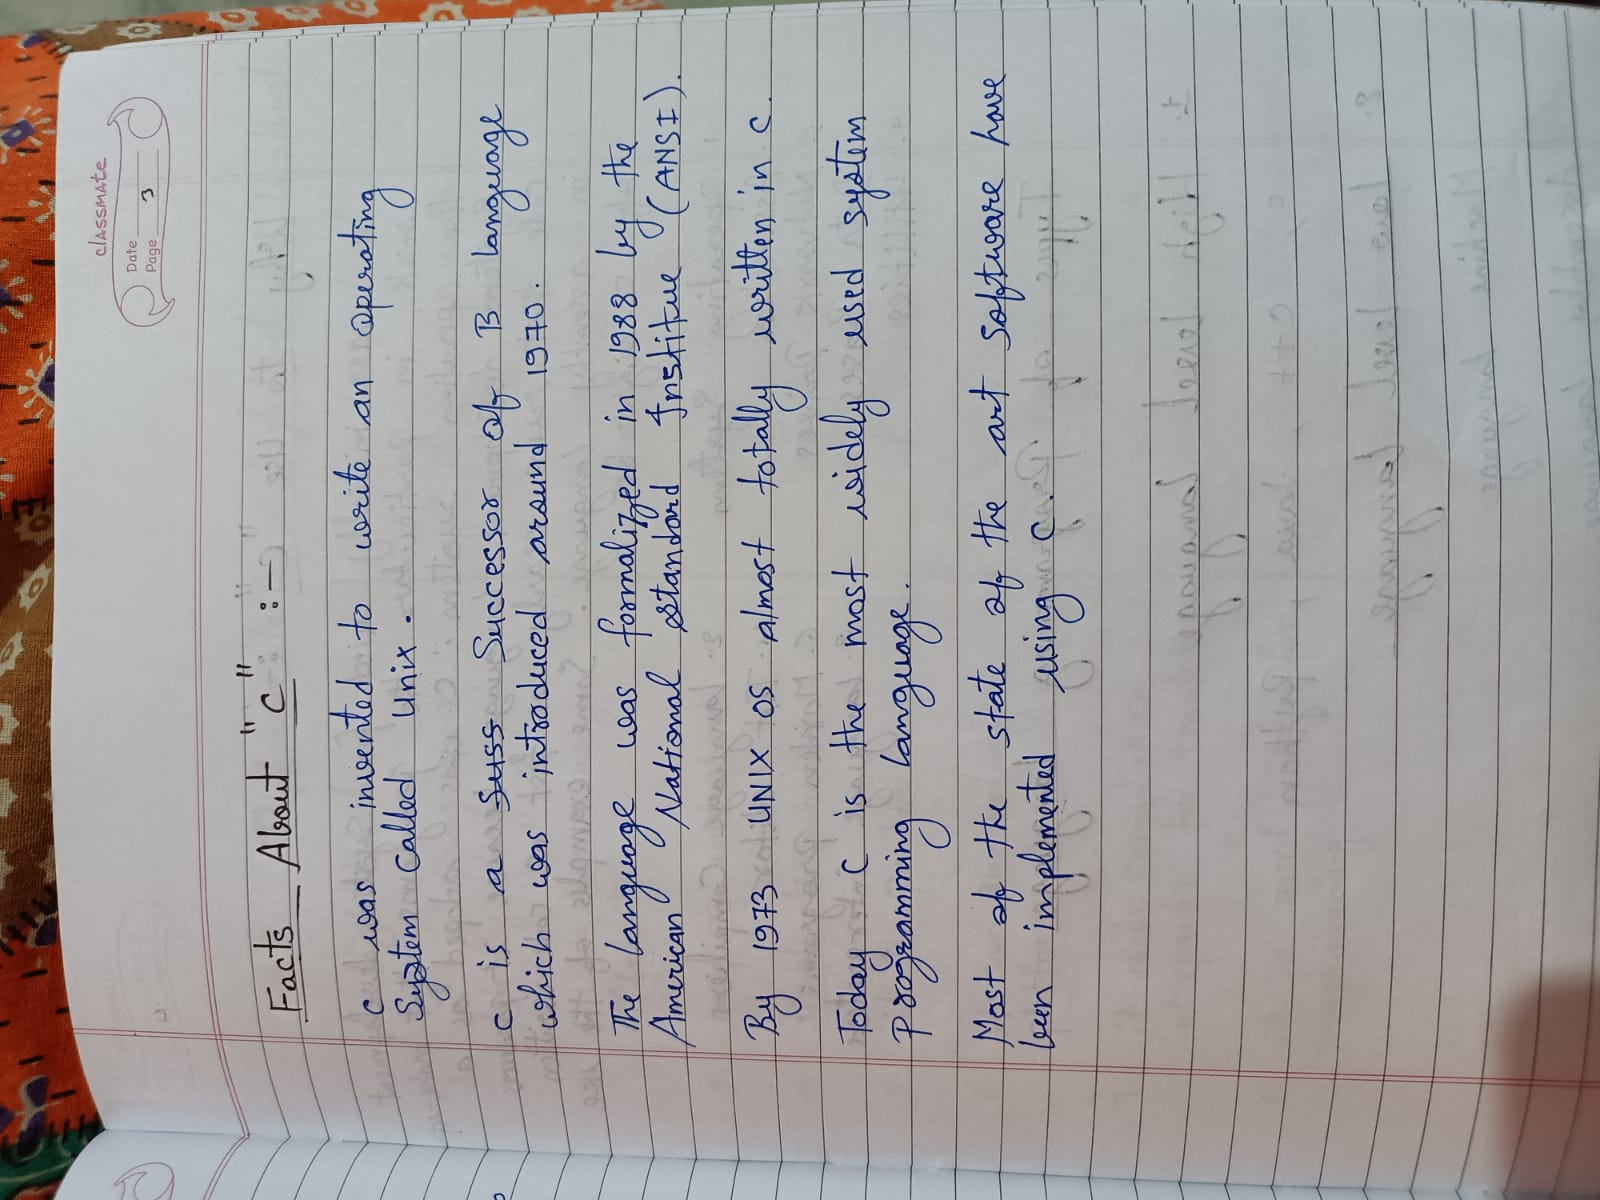 classmate
Date
Page 3
Facts About "C" :-
C was invented to write an operating
System called Unix.
C is a Suss Successor of B language
which was introduced around 1970.
The language was formalized in 1988 by the
American National standard Institue (ANSI).
By 1973 UNIX OS almost totally written in C.
Today C is the most widely used system
Programming language.
Most of the state of the art software have
been implemented using C.